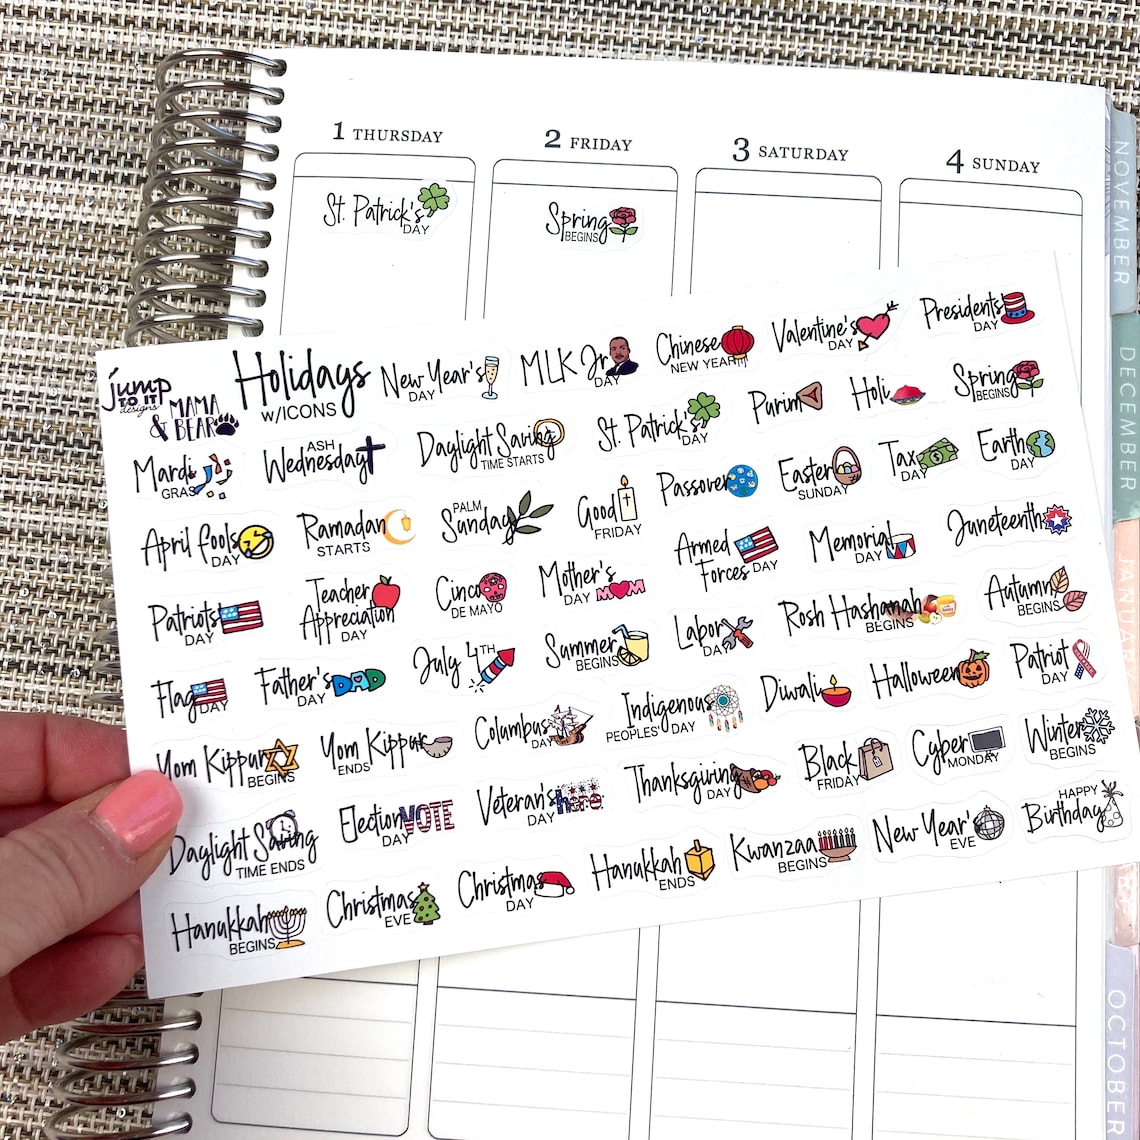 1 THURSDAY
2 FRIDAY
3 SATURDAY
4 SUNDAY
St. Patrick's
DAY
Spring
BEGINS
jump
TO IT
designs
& MAMA
BEAR
Holidays
W/ICONS
New Year's
DAY
MLK Jr.
DAY
Chinese
NEW YEAR
Valentine's
DAY
Presidents
DAY
Mardi
GRAS
ASH
Wednesday
Daylight Saving
TIME STARTS
St. Patrick's
DAY
Purim
Holi
Spring
BEGINS
April Fools
DAY
Ramadan
STARTS
PALM
Sunday
Good
FRIDAY
Passover
Easter
SUNDAY
Tax
DAY
Earth
DAY
Patriots
DAY
Teacher
Appreciation
DAY
Cinco
DE MAYO
Mother's
DAY MOM
Armed
Forces DAY
Memorial
DAY
Juneteenth
Flag
DAY
Father's
DAY DAD
July 4TH
Summer
BEGINS
Labor
DAY
Rosh Hashanah
BEGINS
Autumn
BEGINS
Yom Kippur
BEGINS
Yom Kippur
ENDS
Columbus
DAY
Indigenous
PEOPLES' DAY
Diwali
Halloween
Patriot
DAY
Daylight Saving
TIME ENDS
Election
DAY VOTE
Veteran's
DAY hero
Thanksgiving
DAY
Black
FRIDAY
Cyber
MONDAY
Winter
BEGINS
Hanukkah
BEGINS
Christmas
EVE
Christmas
DAY
Hanukkah
ENDS
Kwanzaa
BEGINS
New Year'
EVE
HAPPY
Birthday
NOVEMBER
DECEMBER
JANUARY
OCTOBER